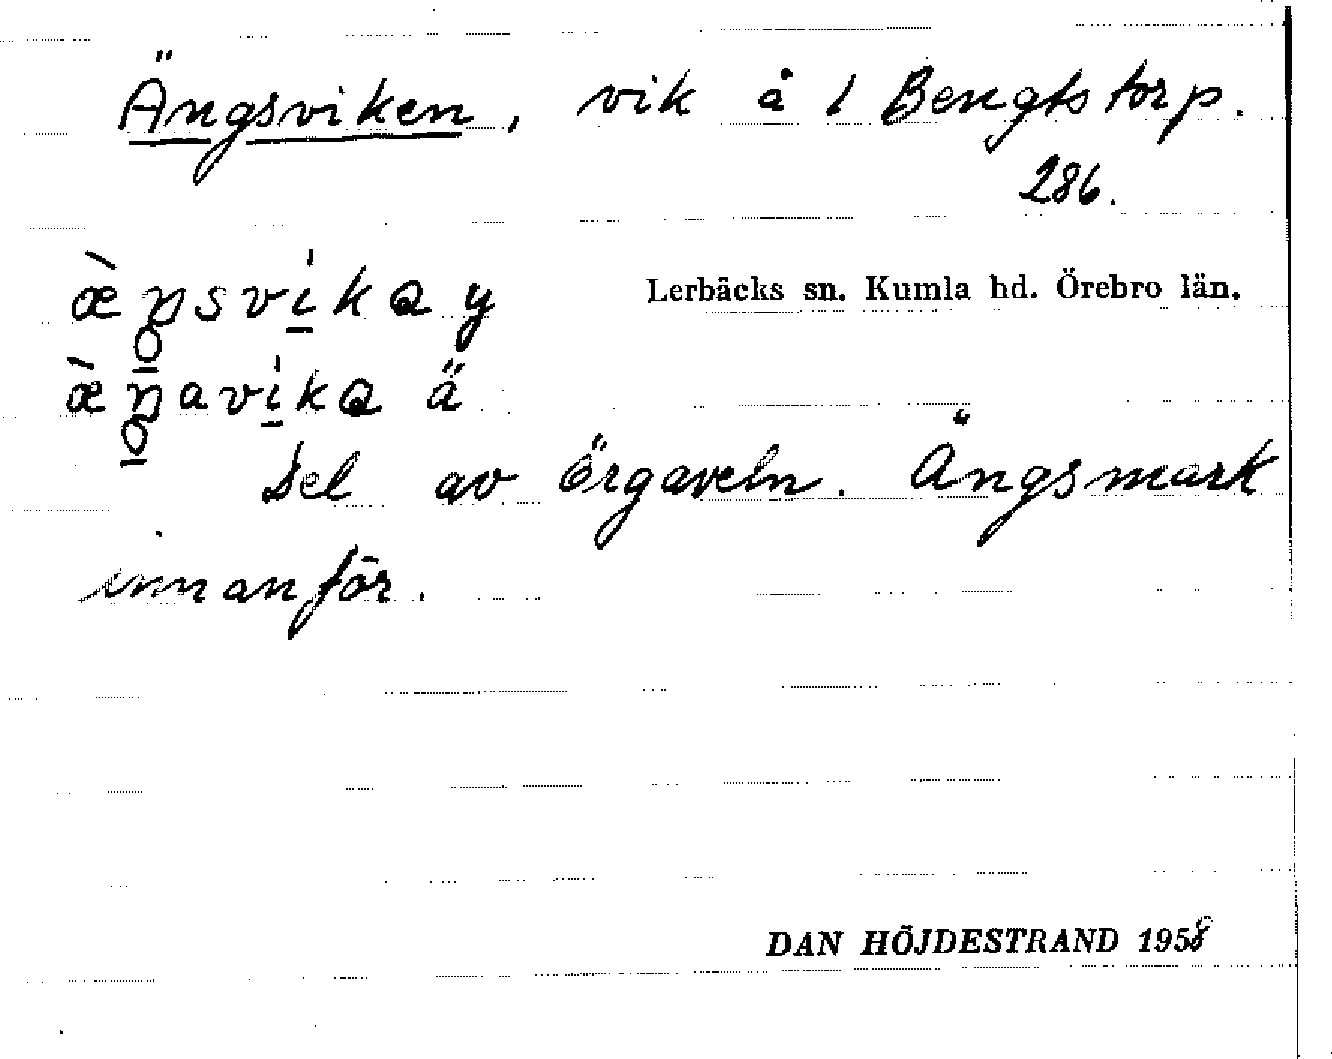 Ängsviken, vik å 1 Bengtstorp.
286.
Lerbäcks sn. Kumla hd. Örebro län.
y
ä
Del av Örgaveln. Ängsmark
innanför.
DAN HÖJDESTRAND 1958